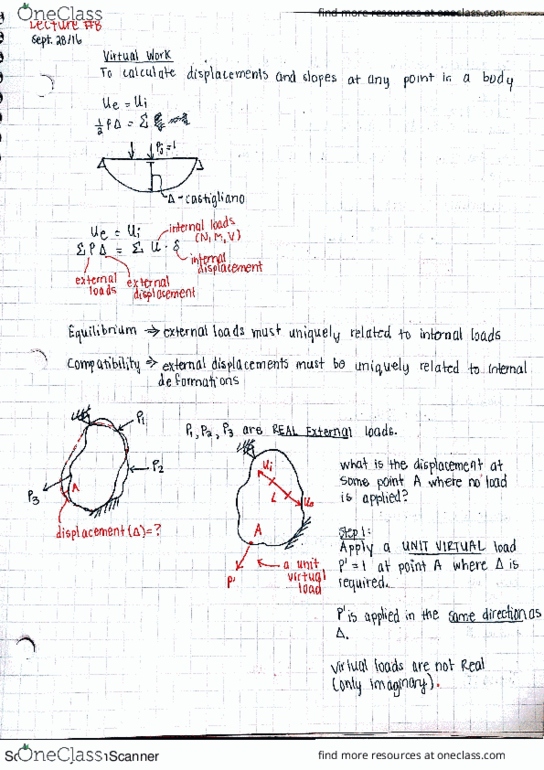 OneClass
find more resources at oneclass.com
Lecture #8
Sept. 28/16
Virtual Work
To calculate displacements and slopes at any point in a body
Ue = Ui
½PΔ = Σ
Pj=1
Δ-castigliano
Ue = Ui
internal loads
(N, M, V)
ΣPΔ = Σ u · δ
internal
displacement
external
loads
external
displacement
Equilibrium → external loads must uniquely related to internal loads
Compatibility → external displacements must be uniquely related to internal
deformations
P1
P2
P3
A
displacement (Δ) = ?
P1, P2, P3 are REAL External loads.
Ui
L
A
P'
a unit
virtual
load
what is the displacement at
some point A where no load
is applied?
Step 1:
Apply a UNIT VIRTUAL load
P'=1 at point A where Δ is
required.
P' is applied in the same direction as
Δ.
Virtual loads are not Real
(only imaginary).
OneClass
Scanner
find more resources at oneclass.com